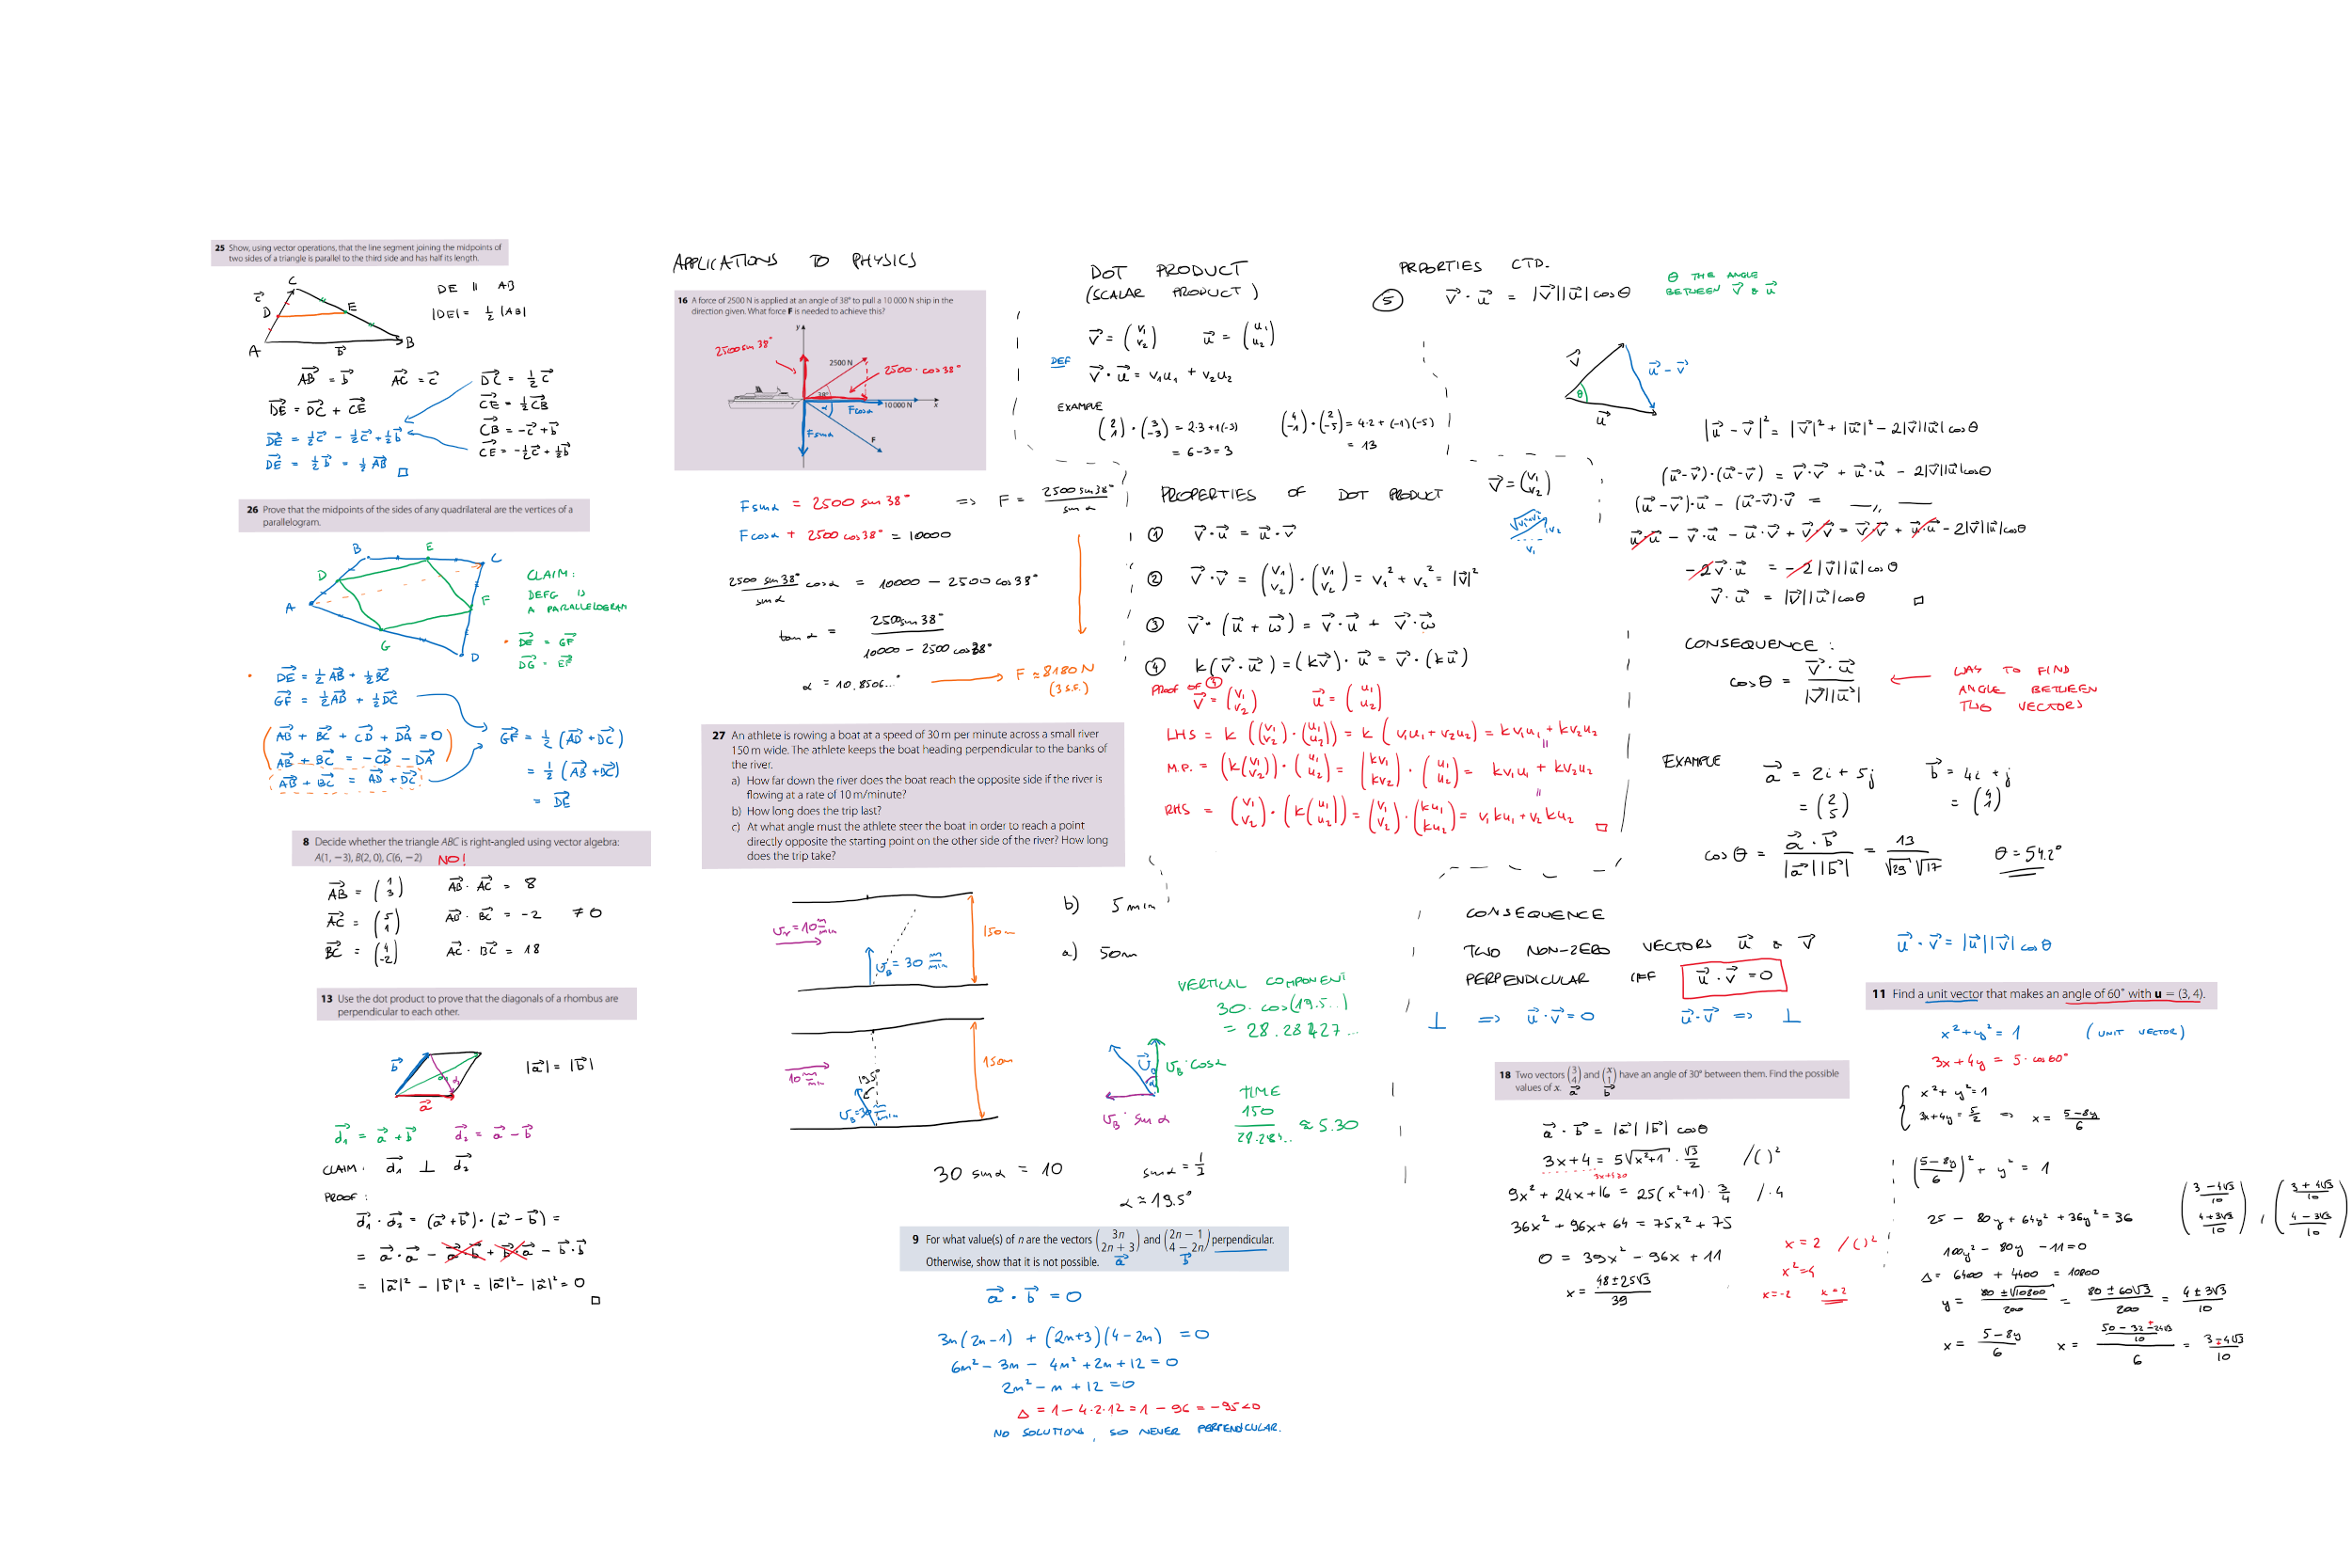 25 Show, using vector operations, that the line segment joining the midpoints of
two sides of a triangle is parallel to the third side and has half its length.
C
c⃗
D
E
A
b⃗
B
DE || AB
|DE| = ½ |AB|
AB⃗ = b⃗ AC⃗ = c⃗
DE⃗ = DC⃗ + CE⃗
DE⃗ = ½c⃗ - ½c⃗ + ½b⃗
DE⃗ = ½b⃗ = ½AB⃗ □
DC⃗ = ½c⃗
CE⃗ = ½CB⃗
CB⃗ = -c⃗ + b⃗
CE⃗ = -½c⃗ + ½b⃗
26 Prove that the midpoints of the sides of any quadrilateral are the vertices of a
parallelogram.
B
E
C
D
A
F
G
D
CLAIM:
DEFG IS
A PARALLELOGRAM
DE⃗ = GF⃗
DG⃗ = EF⃗
DE⃗ = ½AB⃗ + ½BC⃗
GF⃗ = ½AD⃗ + ½DC⃗
AB⃗ + BC⃗ + CD⃗ + DA⃗ = 0
AB⃗ + BC⃗ = -CD⃗ - DA⃗
AB⃗ + BC⃗ = AD⃗ + DC⃗
GF⃗ = ½(AD⃗ + DC⃗)
= ½(AB⃗ + BC⃗)
= DE⃗
8 Decide whether the triangle ABC is right-angled using vector algebra:
A(1, −3), B(2, 0), C(6, −2) NO!
AB⃗ = (1 3) AB⃗ · AC⃗ = 8
AC⃗ = (5 1) AB⃗ · BC⃗ = -2 ≠ 0
BC⃗ = (4 -2) AC⃗ · BC⃗ = 18
13 Use the dot product to prove that the diagonals of a rhombus are
perpendicular to each other.
b⃗
a⃗
|a⃗| = |b⃗|
d₁⃗ = a⃗ + b⃗ d₂⃗ = a⃗ - b⃗
CLAIM: d₁⃗ ⊥ d₂⃗
PROOF:
d₁⃗ · d₂⃗ = (a⃗ + b⃗)·(a⃗ - b⃗) =
= a⃗·a⃗ - a⃗·b⃗ + b⃗·a⃗ - b⃗·b⃗
= |a⃗|² - |b⃗|² = |a⃗|² - |a⃗|² = 0 □
APPLICATIONS TO PHYSICS
16 A force of 2500 N is applied at an angle of 38° to pull a 10 000 N ship in the
direction given. What force F is needed to achieve this?
y
2500 sin 38°
2500 N
2500 · cos 38°
38°
α
F cos α
10 000 N
x
F sin α
F
F sin α = 2500 sin 38° => F = 2500 sin 38° / sin α
F cos α + 2500 cos 38° = 10000
2500 sin 38° / sin α cos α = 10000 - 2500 cos 38°
tan α = 2500 sin 38° / 10000 - 2500 cos 38°
α = 10.8506...° F ≈ 8180 N
(3 S.F.)
27 An athlete is rowing a boat at a speed of 30 m per minute across a small river
150 m wide. The athlete keeps the boat heading perpendicular to the banks of
the river.
a) How far down the river does the boat reach the opposite side if the river is
flowing at a rate of 10 m/minute?
b) How long does the trip last?
c) At what angle must the athlete steer the boat in order to reach a point
directly opposite the starting point on the other side of the river? How long
does the trip take?
v_r = 10 m/min
v_B = 30 m/min
150m
b) 5 min
a) 50m
10 m/min
19.5°
v_B = 30 m/min
150m
VERTICAL COMPONENT
30 · cos(19.5...)
= 28.28427...
v_B
α
v_B · cos α
v_B · sin α
TIME
150 / 28.284.. ≈ 5.30
30 sin α = 10 sin α = 1/3
α ≈ 19.5°
9 For what value(s) of n are the vectors (3n 2n + 3) and (2n − 1 4 − 2n) perpendicular.
Otherwise, show that it is not possible. a⃗ b⃗
a⃗ · b⃗ = 0
3n(2n-1) + (2n+3)(4-2n) = 0
6n² - 3n - 4n² + 2n + 12 = 0
2n² - n + 12 = 0
Δ = 1 - 4·2·12 = 1 - 96 = -95 < 0
NO SOLUTIONS, SO NEVER PERPENDICULAR.
DOT PRODUCT
(SCALAR PRODUCT)
v⃗ = (v₁ v₂) u⃗ = (u₁ u₂)
DEF
v⃗ · u⃗ = v₁u₁ + v₂u₂
EXAMPLE
(2 1)·(3 -3) = 2·3 + 1(-3)
= 6 - 3 = 3
(4 -1)·(2 -5) = 4·2 + (-1)(-5)
= 13
PROPERTIES OF DOT PRODUCT
v⃗ = (v₁ v₂)
√v₁²+v₂²
v₂
v₁
① v⃗ · u⃗ = u⃗ · v⃗
② v⃗ · v⃗ = (v₁ v₂)·(v₁ v₂) = v₁² + v₂² = |v⃗|²
③ v⃗ · (u⃗ + w⃗) = v⃗ · u⃗ + v⃗ · w⃗
④ k(v⃗ · u⃗) = (kv⃗) · u⃗ = v⃗ · (ku⃗)
Proof of ④
v⃗ = (v₁ v₂) u⃗ = (u₁ u₂)
LHS = k((v₁ v₂)·(u₁ u₂)) = k(v₁u₁ + v₂u₂) = kv₁u₁ + kv₂u₂
M.P. = (k(v₁ v₂))·(u₁ u₂) = (kv₁ kv₂)·(u₁ u₂) = kv₁u₁ + kv₂u₂
RHS = (v₁ v₂)·(k(u₁ u₂)) = (v₁ v₂)·(ku₁ ku₂) = v₁ku₁ + v₂ku₂ □
PRPORTIES CTD.
⑤ v⃗ · u⃗ = |v⃗||u⃗| cos θ
θ THE ANGLE
BETWEEN v⃗ & u⃗
v⃗
u⃗ - v⃗
θ
u⃗
|u⃗ - v⃗|² = |v⃗|² + |u⃗|² - 2|v⃗||u⃗| cos θ
(u⃗-v⃗)·(u⃗-v⃗) = v⃗·v⃗ + u⃗·u⃗ - 2|v⃗||u⃗|cos θ
(u⃗-v⃗)·u⃗ - (u⃗-v⃗)·v⃗ = —„—
u⃗·u⃗ - v⃗·u⃗ - u⃗·v⃗ + v⃗·v⃗ = v⃗·v⃗ + u⃗·u⃗ - 2|v⃗||u⃗|cos θ
-2v⃗·u⃗ = -2|v⃗||u⃗|cos θ
v⃗·u⃗ = |v⃗||u⃗|cos θ □
CONSEQUENCE:
cos θ = v⃗·u⃗ / |v⃗||u⃗|
WAY TO FIND
ANGLE BETWEEN
TWO VECTORS
EXAMPLE a⃗ = 2i + 5j b⃗ = 4i + j
= (2 5) = (4 1)
cos θ = a⃗·b⃗ / |a⃗||b⃗| = 13 / √29 √17 θ = 54.2°
CONSEQUENCE
TWO NON-ZERO VECTORS u⃗ & v⃗
PERPENDICULAR IFF u⃗ · v⃗ = 0
⊥ => u⃗·v⃗ = 0 u⃗·v⃗ => ⊥
u⃗ · v⃗ = |u⃗||v⃗| cos θ
18 Two vectors (3 4) and (x 1) have an angle of 30° between them. Find the possible
values of x. a⃗ b⃗
a⃗ · b⃗ = |a⃗||b⃗| cos θ
3x+4 = 5√x²+1 · √3/2 /( )²
3x+4≥0
9x² + 24x + 16 = 25(x²+1) · 3/4 /·4
36x² + 96x + 64 = 75x² + 75
0 = 39x² - 96x + 11
x = 48 ± 25√3 / 39
x = 2 /( )²
x² = 4
x = -2 x = 2
11 Find a unit vector that makes an angle of 60° with u = (3, 4).
x² + y² = 1 (UNIT VECTOR)
3x + 4y = 5 · cos 60°
x² + y² = 1
3x + 4y = 5/2 => x = 5-8y / 6
(5-8y / 6)² + y² = 1
25 - 80y + 64y² + 36y² = 36
100y² - 80y - 11 = 0
Δ = 6400 + 4400 = 10800
y = 80 ± √10800 / 200 = 80 ± 60√3 / 200 = 4 ± 3√3 / 10
x = 5-8y / 6 x = 50 - 32 ∓ 24√3 / 10 / 6 = 3 ∓ 4√3 / 10
(3 - 4√3 / 10 4 + 3√3 / 10), (3 + 4√3 / 10 4 - 3√3 / 10)